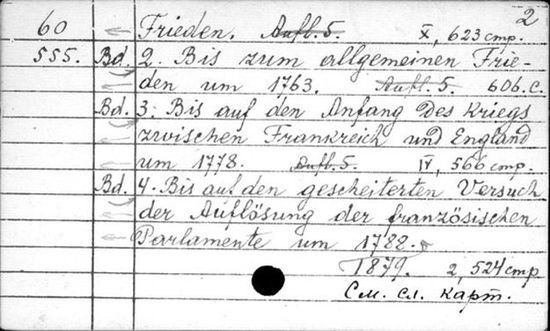 2
60 Frieden. Aufl. 5. X, 623 стр.
555. Bd. 2. Bis zum allgemeinen Frie-
den um 1763. Aufl. 5. 606. с.
Bd. 3. Bis auf den Anfang des Kriegs
zwischen Frankreich und England
um 1778. Aufl. 5. IV, 566 стр.
Bd. 4. Bis auf den gescheiterten Versuch
der Auflösung der französischen
Parlamente um 1788.
1879. 2, 524 стр
См. сл. карт.